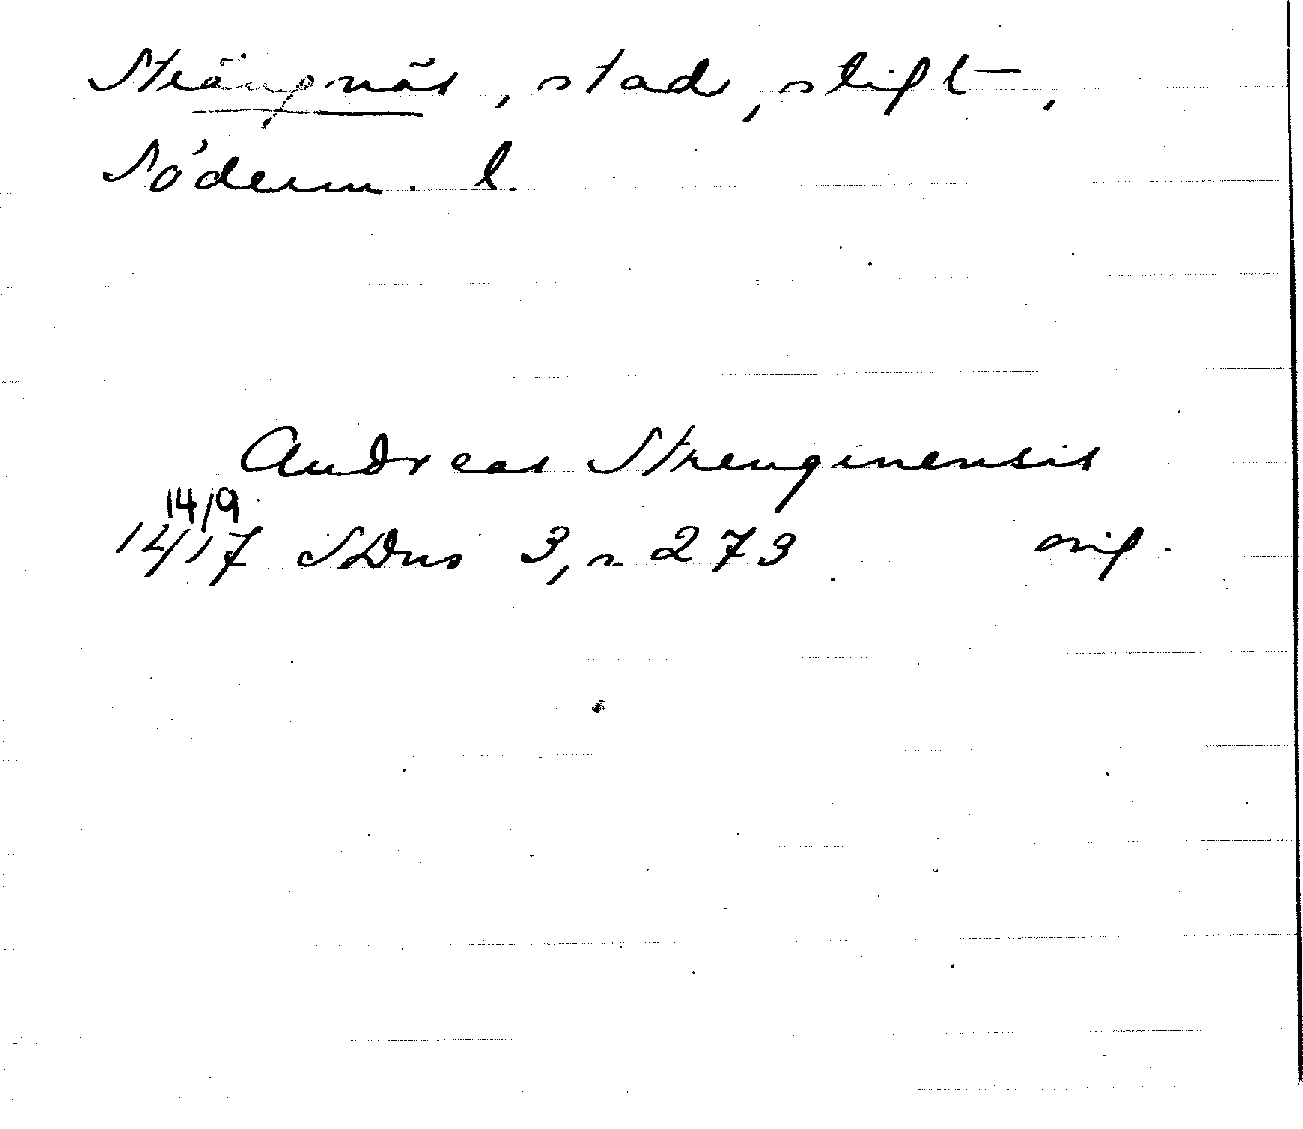 Strängnäs, stad, stift,
Söderm. l.
Andreas Strenginensis
14/9
1417 SDns 3, n 273 orig.